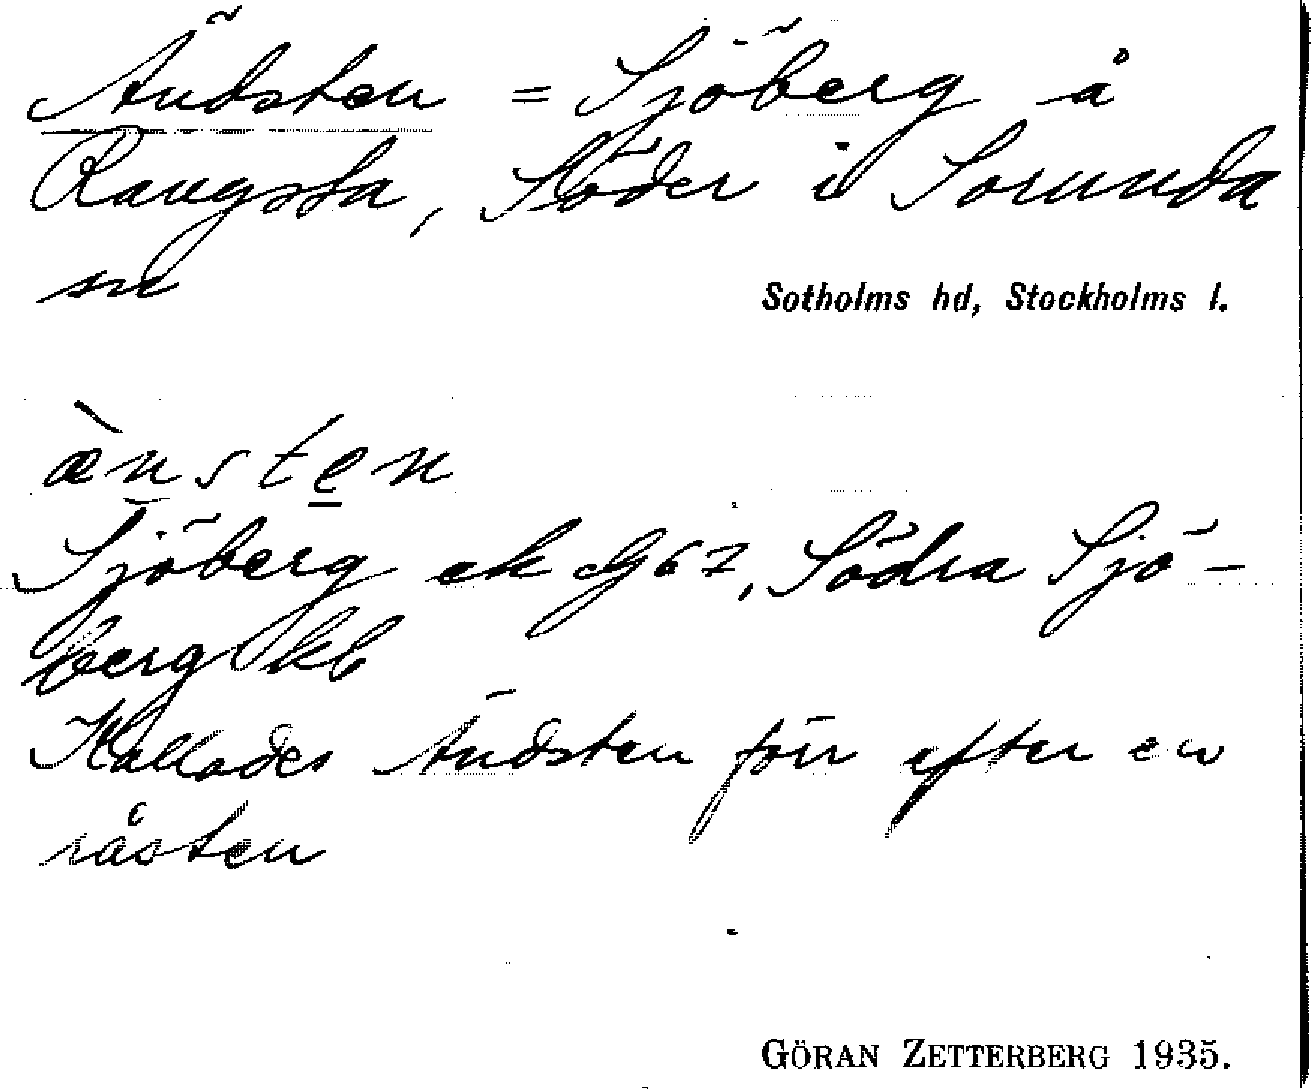 Ändsten = Sjöberg å
Rangsta, Söder i Sorunda
sn
Sotholms hd, Stockholms l.
ænsten
Sjöberg ek G67, Södra Sjö-
berg kb
Kallades Ändsten förr efter en
råsten
GÖRAN ZETTERBERG 1935.